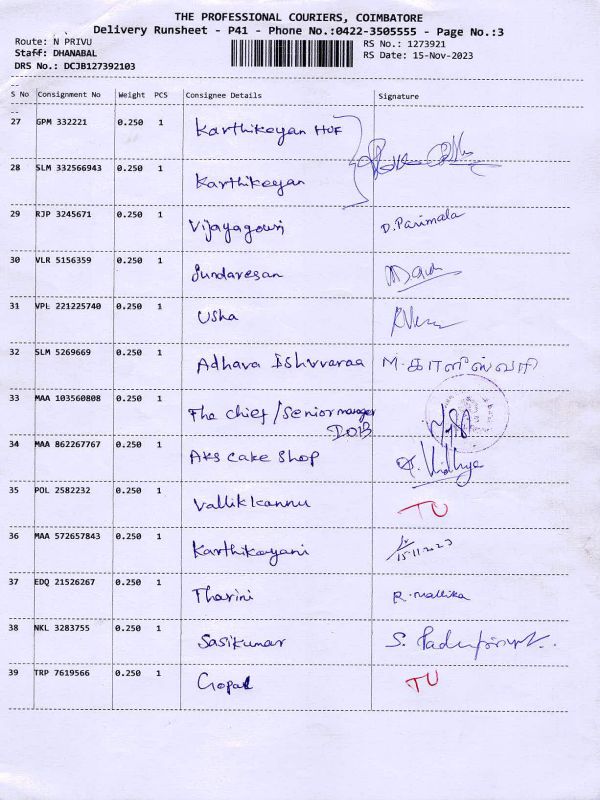 THE PROFESSIONAL COURIERS, COIMBATORE
Delivery Runsheet - P41 - Phone No.:0422-3505555 - Page No.:3
Route: N PRIVU RS No.: 1273921
Staff: DHANABAL RS Date: 15-Nov-2023
DRS No.: DCJB127392103
S No Consignment No Weight PCS Consignee Details Signature
27 GPM 332221 0.250 1 Karthikeyan HUF
28 SLM 332566943 0.250 1 Karthikeyan
29 RJP 3245671 0.250 1 Vijayagouri D. Parimala
30 VLR 5156359 0.250 1 Sundaresan
31 VPL 221225740 0.250 1 Usha
32 SLM 5269669 0.250 1 Adhava Eshvvaraa M. காளீஸ்வரி
33 MAA 103560808 0.250 1 The chief / Senior manager
DOIB
34 MAA 862267767 0.250 1 AKS Cake Shop Vidhya
35 POL 2582232 0.250 1 Vallikkannu TU
36 MAA 572657843 0.250 1 Karthikeyani 15.11.2023
37 EDQ 21526267 0.250 1 Tharini R. Mallika
38 NKL 3283755 0.250 1 Sasikumar S.
39 TRP 7619566 0.250 1 Gopal TU